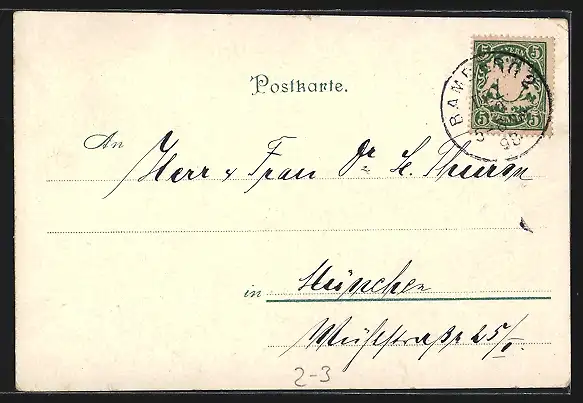 5 BAYERN 5
5 PFENNIG 5
BAMBERG 2
98
Postkarte.
An Herr & Frau Dr. H.
in München
25/I.
2-3